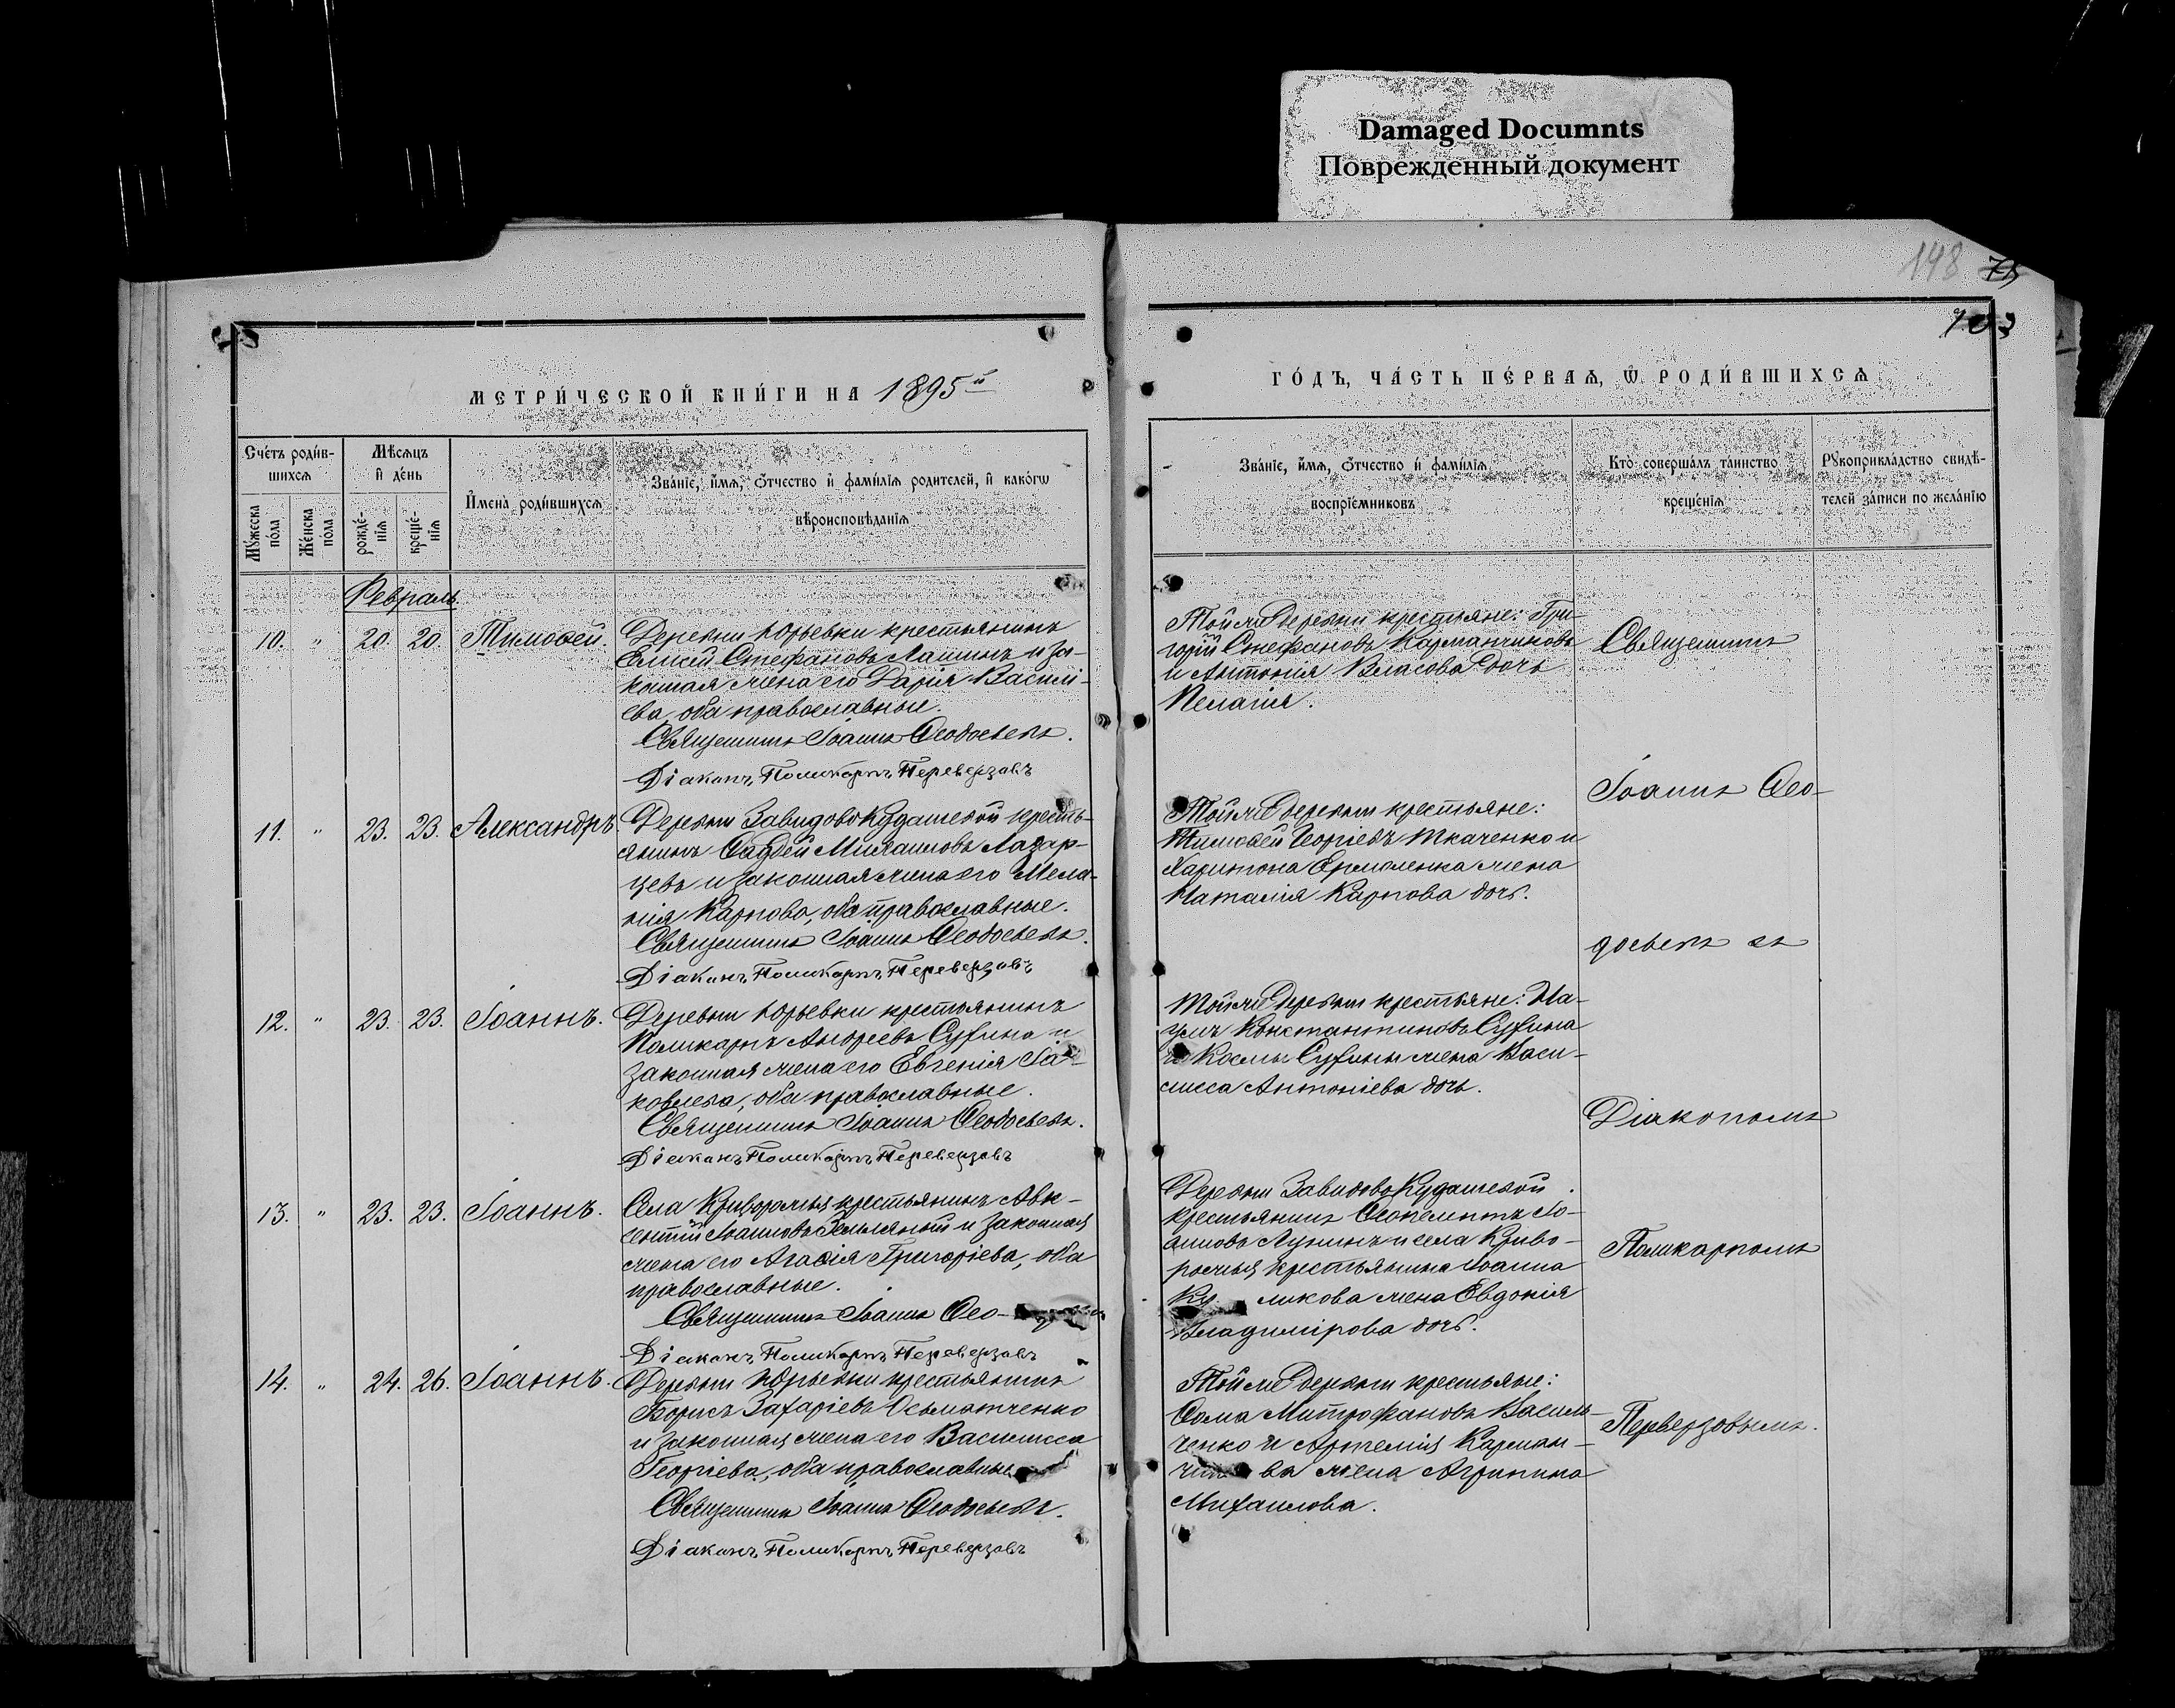 Damaged Documnts
Поврежденный документ
148
МЕТРИ́ЧЕСКОЙ КНИ́ГИ НА 1895й
ГО́ДЪ, ЧА́СТЬ ПЕ́РВАѦ, Ѡ РОДИ́ВШИХСѦ
Сче́тъ роди́в-
шихсѧ
Мꙋжеска по́ла
Же́нска по́ла
Мѣ́сѧцъ
и де́нь
рожде́-
нїѧ
креще́-
нїѧ
Имена̀ роди́вшихсѧ
Зва́нїе, и́мѧ, ѻ́тчество и фами́лїѧ родителей, и како́гѡ
вѣроисповѣ́данїѧ
Зва́нїе, и́мѧ, ѻ́тчество и фами́лїѧ
воспрїе́мниковъ
Кто̀ соверша́лъ та́инство
креще́нїѧ
Рꙋкоприкла́дство свидѣ́-
телей за́писи по жела́нїю
Февраль
10. " 20. 20. Тимоѳей.
Деревни Юрьевки крестьянинъ
Елисей Стефановъ Лашинъ и за-
конная жена его Дарія Василі-
ева, оба православные.
Священникъ Іоаннъ Ѳеодосьевъ.
Діаконъ Поликарпъ Переверзовъ
Той же деревни крестьяне: Гри-
горій Стефановъ Карманчиковъ
и Антонія Власова дочь
Пелагія.
Священникъ
11. " 23. 23. Александръ.
Деревни Завидово Кудашевой кресть-
янинъ Ѳаддей Михаиловъ Лазар-
цевъ и законная жена его Мела-
нія Карпова, оба православные.
Священникъ Іоаннъ Ѳеодосьевъ.
Діаконъ Поликарпъ Переверзовъ
Той же деревни крестьяне:
Тимоѳей Георгіевъ Ткаченко и
Харитона Ермоленка жена
Наталія Карпова дочь.
Іоаннъ Ѳео-
досьевъ съ
12. " 23. 23. Іоаннъ.
Деревни Юрьевки крестьянинъ
Поликарпъ Андреевъ Сухина и
законная жена его Евгенія Іа-
ковлева, оба православные.
Священникъ Іоаннъ Ѳеодосьевъ.
Діаконъ Поликарпъ Переверзовъ
Той же деревни крестьяне: На-
умъ Константиновъ Сухина
и Космы Сухины жена Васи-
лисса Антоніева дочь.
Діакономъ
13. " 23. 23. Іоаннъ.
Села Криворожья крестьянинъ Авк-
сентій Іоанновъ Земляный и законная
жена его Агаѳія Григоріева, оба
православные.
Священникъ Іоаннъ Ѳео-
Діаконъ Поликарпъ Переверзовъ
Деревни Завидово Кудашевой
крестьянинъ Ѳеопемптъ Іо-
анновъ Лунинъ и села Криво-
рожья крестьянина Іоанна
ликова жена Евдокія
Владимірова дочь.
Поликарпомъ
14. " 24. 26. Іоаннъ.
Деревни Юрьевки крестьянинъ
Борисъ Захаріевъ Осьмаченко
и законная жена его Василисса
Георгіева, оба православные
Священникъ Іоаннъ Ѳеодосьевъ.
Діаконъ Поликарпъ Переверзовъ
Той же деревни крестьяне:
Ѳома Митрофановъ Василь-
ченко и Артемія Карман-
ва жена Агрипина
Михаилова.
Переверзовымъ.